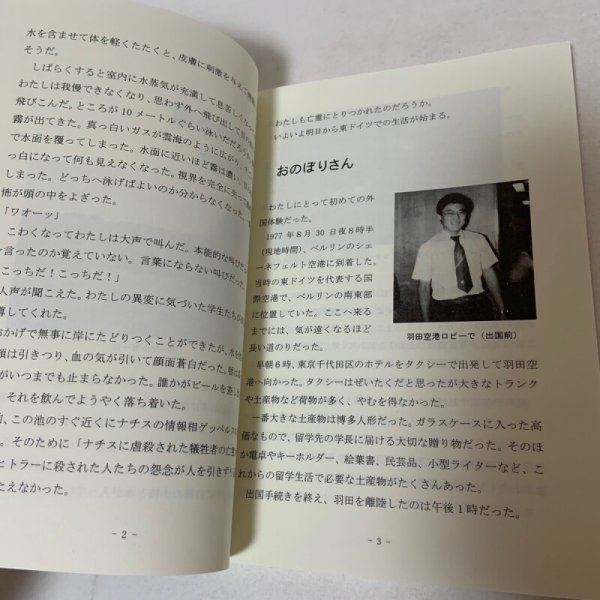 水を含ませて体を軽くたたくと、皮膚に刺激を与えて
そうだ。
しばらくすると室内に水蒸気が充満して息苦しくなっ
わたしは我慢できなくなり、思わず外へ飛び出して
飛びこんだ。ところが 10 メートルぐらい泳いだだろう
霧が出てきた。真っ白いガスが雲海のように広がり、
水面を覆ってしまった。水面に近いほど霧は濃い、
っ白になって何も見えなくなった。視界を完全に失っ
どっちへ泳げばよいのか分からなくなった。
怖が頭の中をよぎった。
「ワオーッ」
こわくなってわたしは大声で叫んだ。本能的な叫びだっ
を言ったのか覚えていない。言葉にならない叫びだった。
こっちだ！こっちだ！」
人声が聞こえた。わたしの異変に気づいた学生たちが
導してくれた。
おかげで無事に岸にたどりつくことができたが、水を
頭は引きつり、血の気が引いて顔面蒼白だった。唇は
がいつまでも止まらなかった。誰かがビールを差し
それを飲んでようやく落ち着いた。
前、この池のすぐ近くにナチスの情報相ゲッベルス
。そのために「ナチスに虐殺された犠牲者の亡霊
ヒトラーに殺された人たちの怨念が人を引きずり
たえなかった。
- 2 -
わたしも亡霊にとりつかれたのだろうか。
いよいよ明日から東ドイツでの生活が始まる。
おのぼりさん
わたしにとって初めての外
国体験だった。
1977 年 8 月 30 日夜 8 時半
（現地時間）、ベルリンのシェ
ーネフェルト空港に到着した。
当時の東ドイツを代表する国
際空港で、ベルリンの南東部
に位置していた。ここへ来る
までには、気が遠くなるほど
長い道のりだった。
羽田空港ロビーで（出国前）
早朝 6 時、東京千代田区のホテルをタクシーで出発して羽田空
港へ向かった。タクシーはぜいたくだと思ったが大きなトランク
や土産物など荷物が多く、やむを得なかった。
一番大きな土産物は博多人形だった。ガラスケースに入った高
価なもので、留学先の学長に届ける大切な贈り物だった。そのほ
か電卓やキーホルダー、絵葉書、民芸品、小型ライターなど、こ
れからの留学生活で必要な土産物がたくさんあった。
出国手続きを終え、羽田を離陸したのは午後 1 時だった。
- 3 -